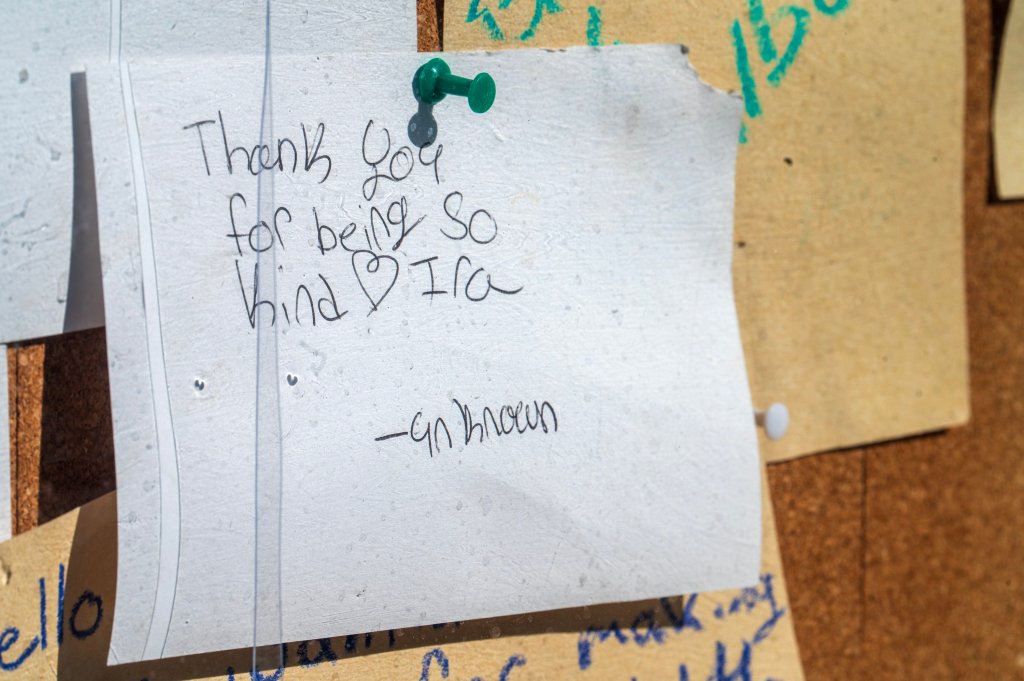 Thank you
for being so
kind ♡ Ira
-unknown
ello
making